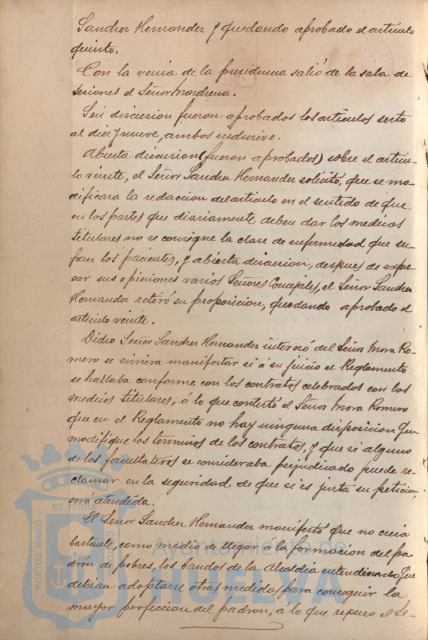 Sanchez Hernandez y quedando aprobado el artículo
quinto.
Con la venia de la presidencia salió de la sala de
sesiones el Señor Mordiena.
Sin discusion fueron aprobados los artículos sexto
al diez y nueve, ambos inclusive.
Abierta discusion (fueron aprobados) sobre el artícu-
lo veinte, el Señor Sanchez Hernandez solicitó, que se mo-
dificara la redaccion del artículo en el sentido de que
en los partes que diariamente deben dar los medicos
titulares no se consigne la clase de enfermedad que su-
fran los pacientes, y abierta discusion, despues de expre-
sar sus opiniones varios Señores Concejales, el Señor Sanchez
Hernandez retiró su proposicion, quedando aprobado el
artículo veinte.
Dicho Señor Sanchez Hernandez interesó del Señor Mora Ro-
mero se sirviera manifestar si á su juicio el Reglamento
se hallaba conforme con los contratos celebrados con los
medicos titulares, á lo que contestó el Señor Mora Romero
que en el Reglamento no hay ninguna disposicion que
modifique los términos de los contratos, y que si alguno
de los facultativos se considerara perjudicado puede re-
clamar en la seguridad de que si es justa su peticion,
será atendida.
El Señor Sanchez Hernandez manifestó que no creia
bastante, como medio de llegar á la formacion del pa-
drón de pobres, los bandos de la Alcaldia entendiendo que
debian adoptarse otras medidas para conseguir la
mayor perfeccion del padron, á lo que repuso el Se-
PORTUS MARIS ET TERRAE
Ayuntamiento de
HUELVA